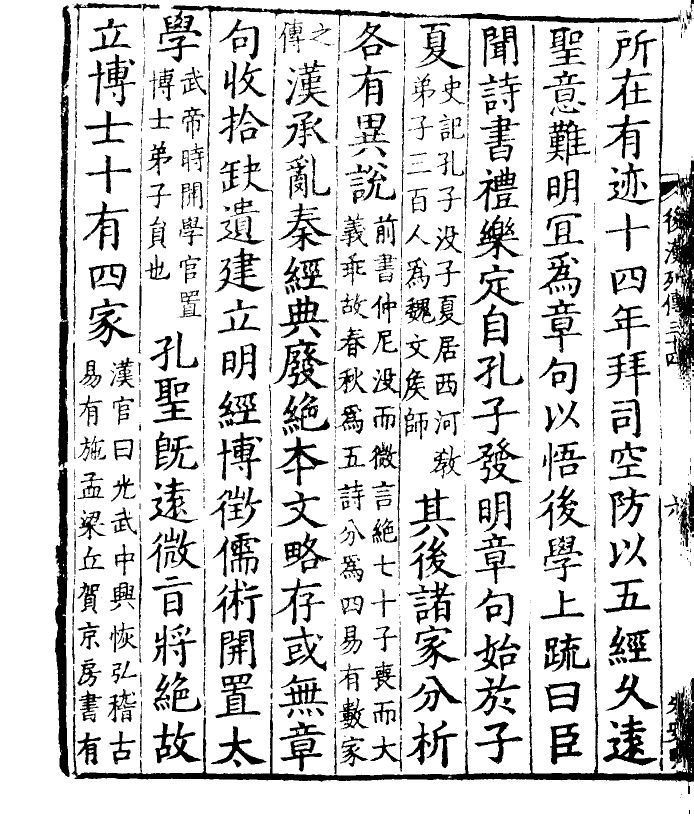 後漢列傳三十四
六
所在有迹十四年拜司空防以五經久遠
聖意難明宜爲章句以悟後學上疏曰臣
聞詩書禮樂定自孔子發明章句始於子
夏史記孔子没子夏居西河教弟子三百人爲魏文侯師其後諸家分析
各有異說前書仲尼没而微言絶七十子喪而大義乖故春秋爲五詩分爲四易有數家
之傳漢承亂秦經典廢絶本文略存或無章
句收拾缺遺建立明經博徵儒術開置太
學武帝時開學官置博士弟子員也孔聖既遠微言將絶故
立博士十有四家漢官曰光武中興恢弘稽古易有施孟梁丘賀京房書有